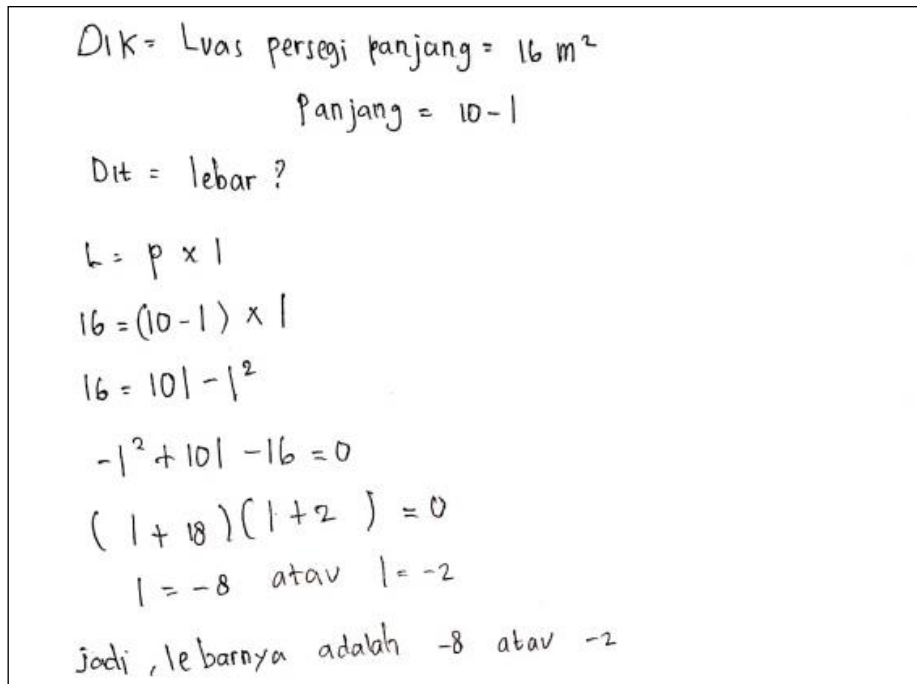 Dik = Luas persegi panjang = 16 m²
Panjang = 10 - l
Dit = lebar ?
L = p x l
16 = (10 - l) x l
16 = 10l - l²
-l² + 10l - 16 = 0
(l + 18)(l + 2) = 0
l = -8 atau l = -2
jadi, lebarnya adalah -8 atau -2